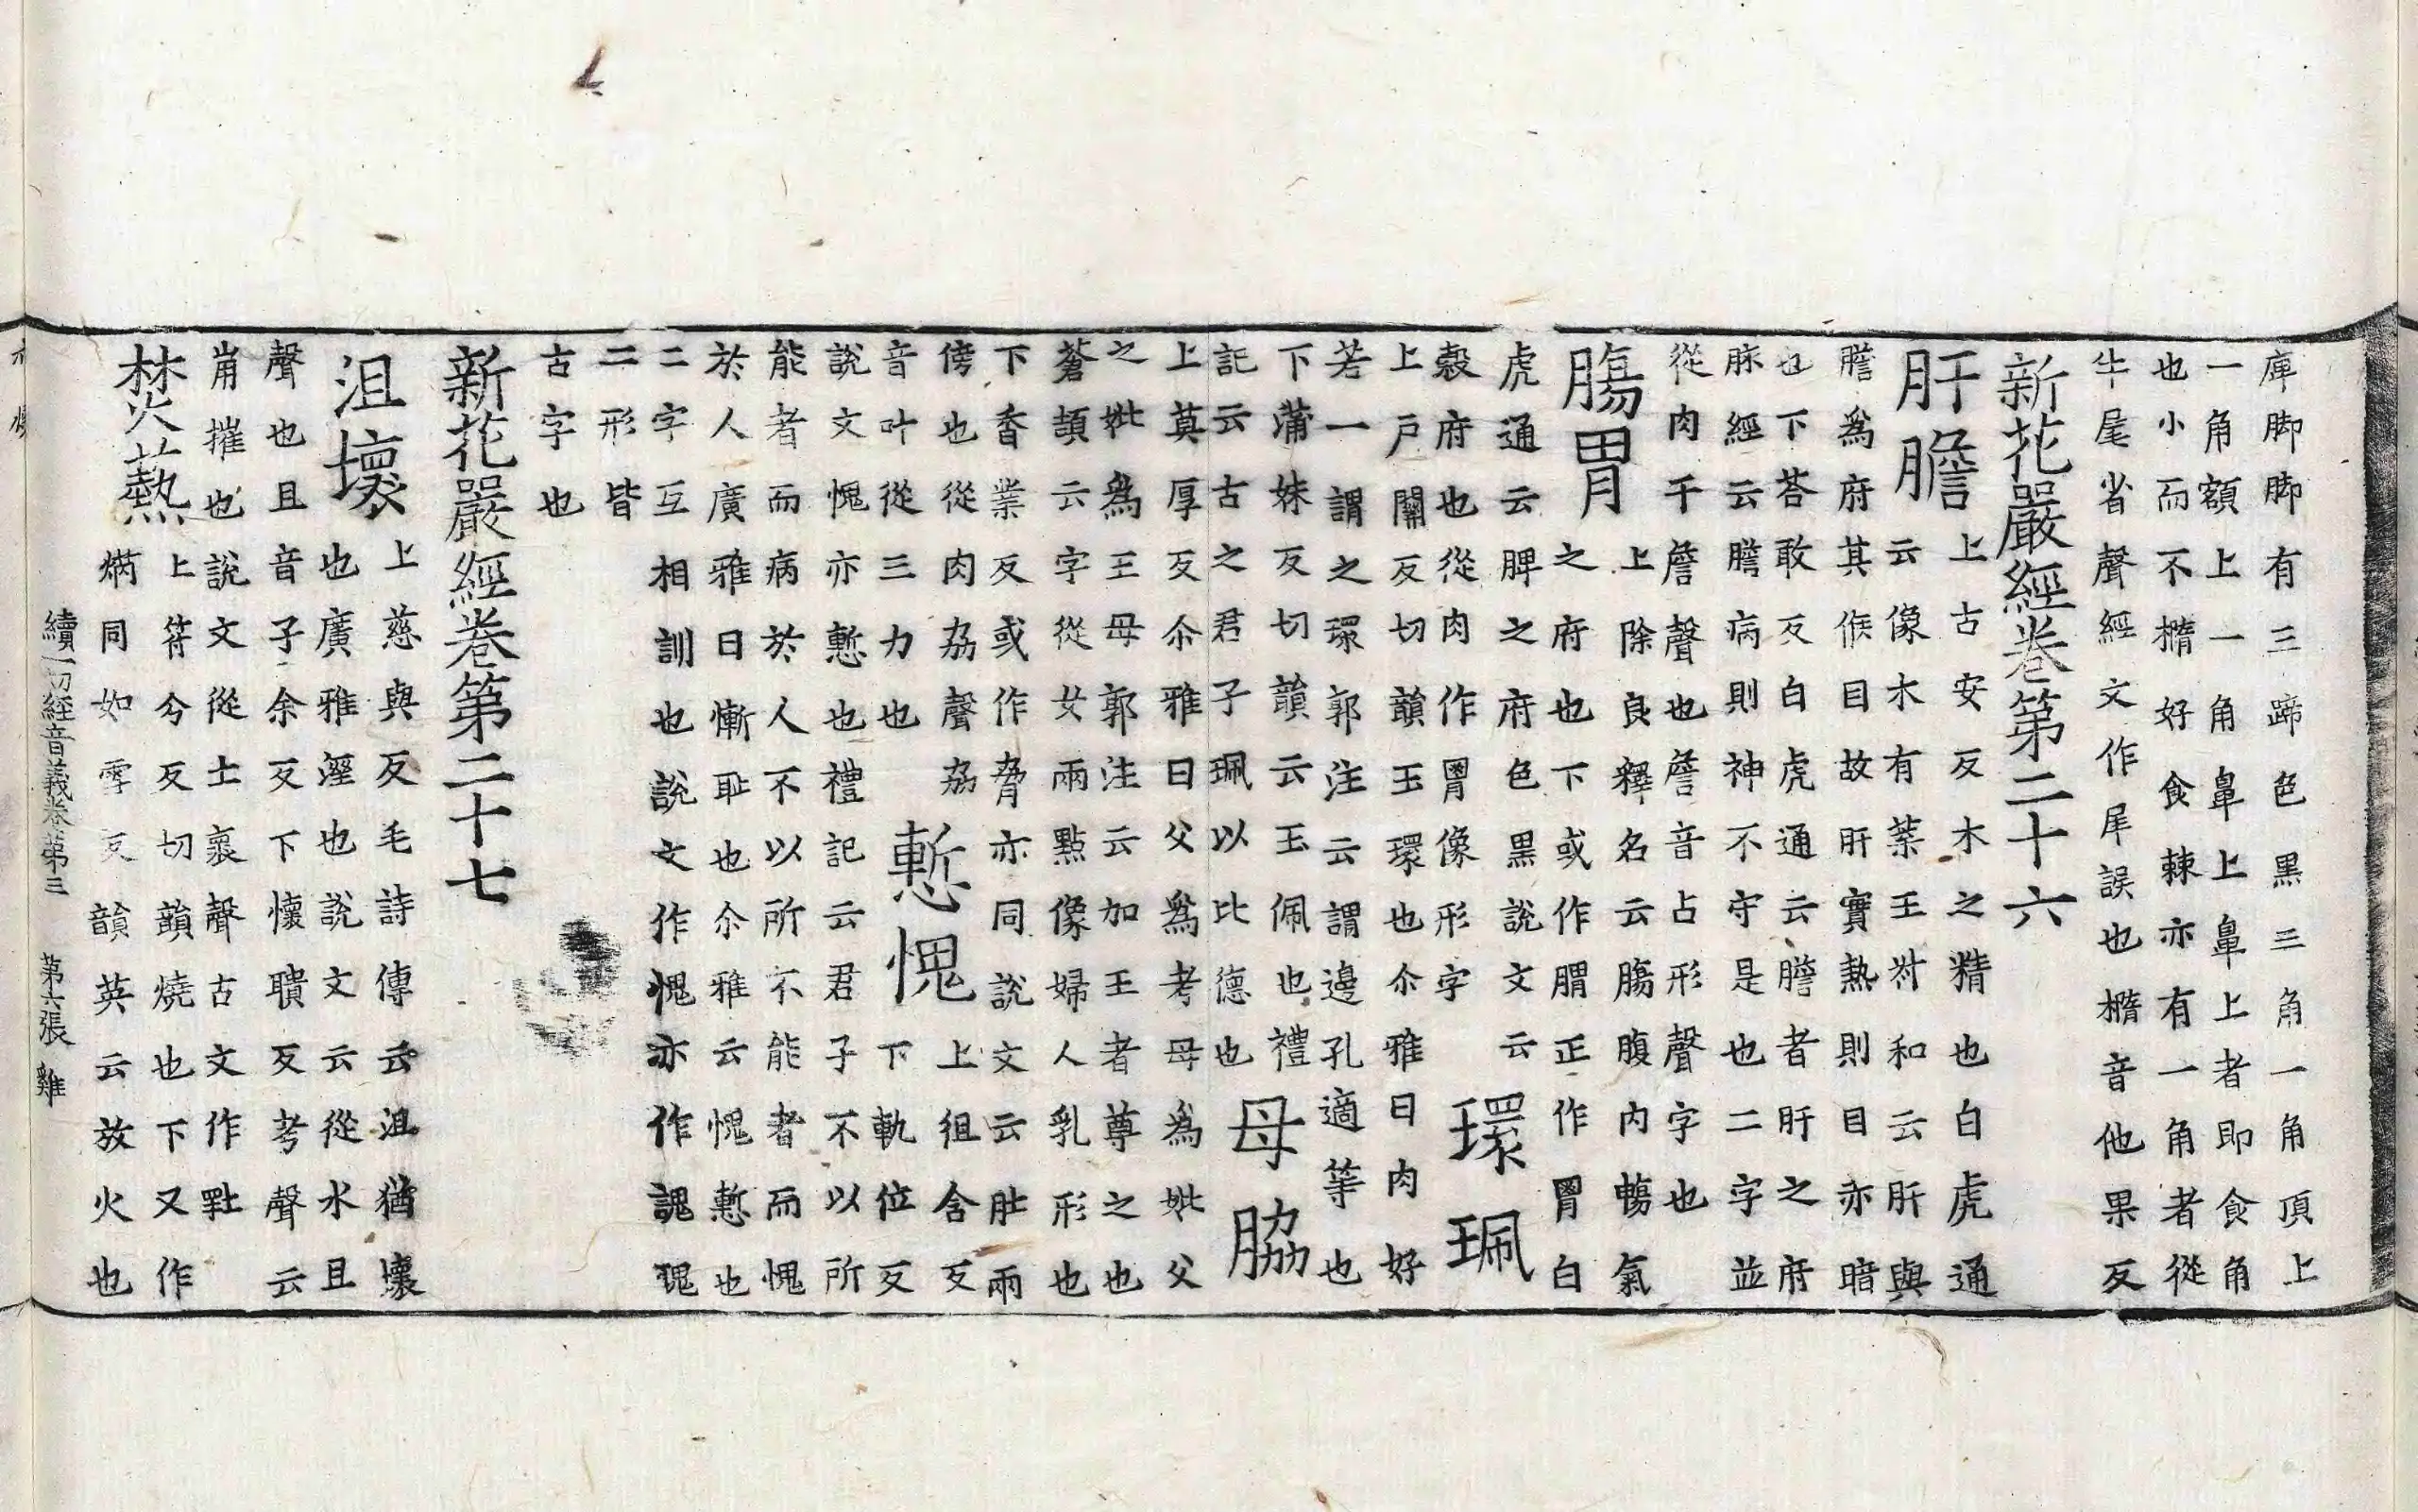 庳脚脚有三蹄色黑三角一角頂上
一角額上一角鼻上鼻上者即食角
也小而不橢好食棘亦有一角者從
牛尾省聲經文作犀誤也橢音他果反
新花嚴經卷第二十六
肝膽
上古安反木之精也白虎通
云像木有葉王叔和云肝與
膽爲府其候目故肝實熱則目亦暗
也下荅敢反白虎通云膽者肝之府
脉經云膽病則神不守是也二字並
從肉干詹聲也詹音占形聲字也
腸胃
上除良釋名云腸腹內暢氣
之府也下或作腪正作胃白
虎通云脾之府色黒說文云
穀府也從肉作胃像形字
環珮
上戸關反切韻玉環也尒雅曰肉好
若一謂之環郭注云謂邊孔適等也
下蒲妹反切韻云玉佩也禮
記云古之君子珮以比德也
母脇
上莫厚反尒雅曰父爲考母爲妣父
之妣爲王母郭注云加王者尊之也
蒼頡云字從女兩點像婦人乳形也
下香業反或作脅亦同說文云肚兩
傍也從肉劦聲劦
音叶從三力也
慙愧
上徂含反
下軌位反
說文愧亦慙也禮記云君子不以所
能者而病於人不以所不能者而愧
於人廣雅曰慚耻也尒雅云愧慙也
二字互相訓也說文作愧亦作謉瑰
二形皆
古字也
新花嚴經卷第二十七
沮壞
上慈與反毛詩傳云沮猶壞
也廣雅溼也說文云從水且
聲也且音子余反下懷聵反考聲云
崩摧也說文從土褱聲古文作𡊅
焚爇
上符分反切韻燒也下又作
焫同如雪反韻英云放火也
續一切経音義卷第三 第六張 雞